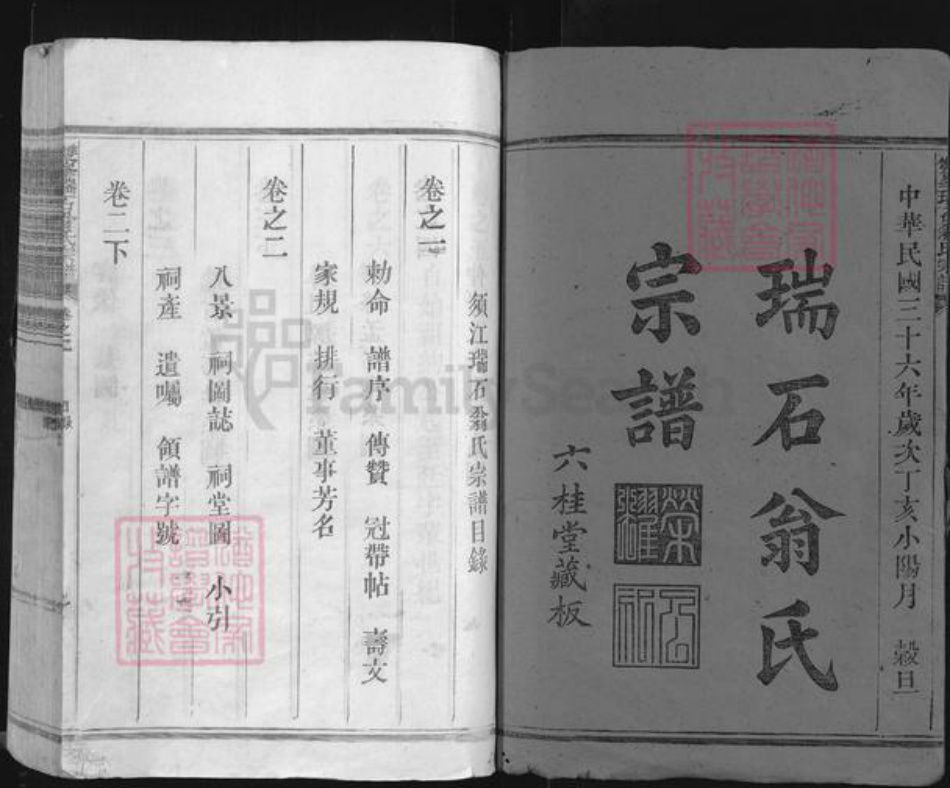 中華民國三十六年歲次丁亥小陽月 榖旦
瑞石翁氏
宗譜
六桂堂藏板
須江瑞石翁氏宗譜目錄
卷之一
勅命 譜序 傳贊 冠帶帖 壽文
家規 排行 董事芳名
卷之二
八景 祠圖誌 祠堂圖 小引
祠產 遺囑 領譜字號
卷二下
FamilySearch